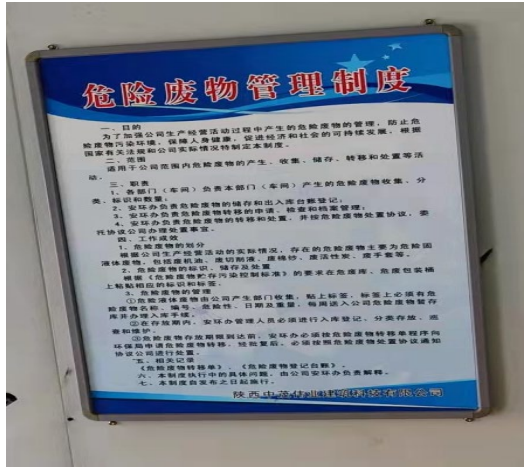 危险废物管理制度
一、目的
为了加强公司生产经营活动过程中产生的危险废物的管理，防止危
险废物污染环境，保障人身健康，促进经济和社会的可持续发展，根据
国家有关法规和公司实际情况特制定本制度。
二、范围
适用于公司范围内危险废物的产生、收集、储存、转移和处置等活
动。
三、职责
1、各部门（车间）负责本部门（车间）产生的危险废物收集、分
类、标识和数量；
2、安环办负责危险废物的储存和出入库台账登记；
3、安环办负责危险废物转移的申请、检查和档案管理；
4、安环办负责危险废物的转移和处置，并按危险废物处置协议，委
托协议公司办理处置事宜。
四、工作成效
1、危险废物的划分
根据公司生产经营活动的实际情况，存在的危险废物主要为危险固
液体废物，包括废机油、废切削液、废棉纱、废活性炭、废手套等。
2、危险废物的标识、储存及处置
根据《危险废物贮存污染控制标准》的要求在危废库、危废包装桶
上粘贴相应的标识和标签。
3、危险废物的管理
①危险液体废物由公司产生部门收集，贴上标签，标签上必须有危
险废物名称、编号、危险性、日期及重量，每周送入公司危险废物暂存
库并办理入库手续。
②在存放期内，安环办管理人员必须进行入库登记、分类存放、巡
查和维护。
③危险废物存放期限到达前，安环办必须按危险废物转移单程序向
环保局申请危险废物转移，经批复后，必须按照危险废物处置协议通知
协议公司进行处置。
五、相关记录
《危险废物转移单》、《危险废物登记台账》。
六、本制度执行中的具体问题，由公司安环办负责解释。
七、本制度自发布之日起施行。
陕西中茂伟业建明科技有限公司